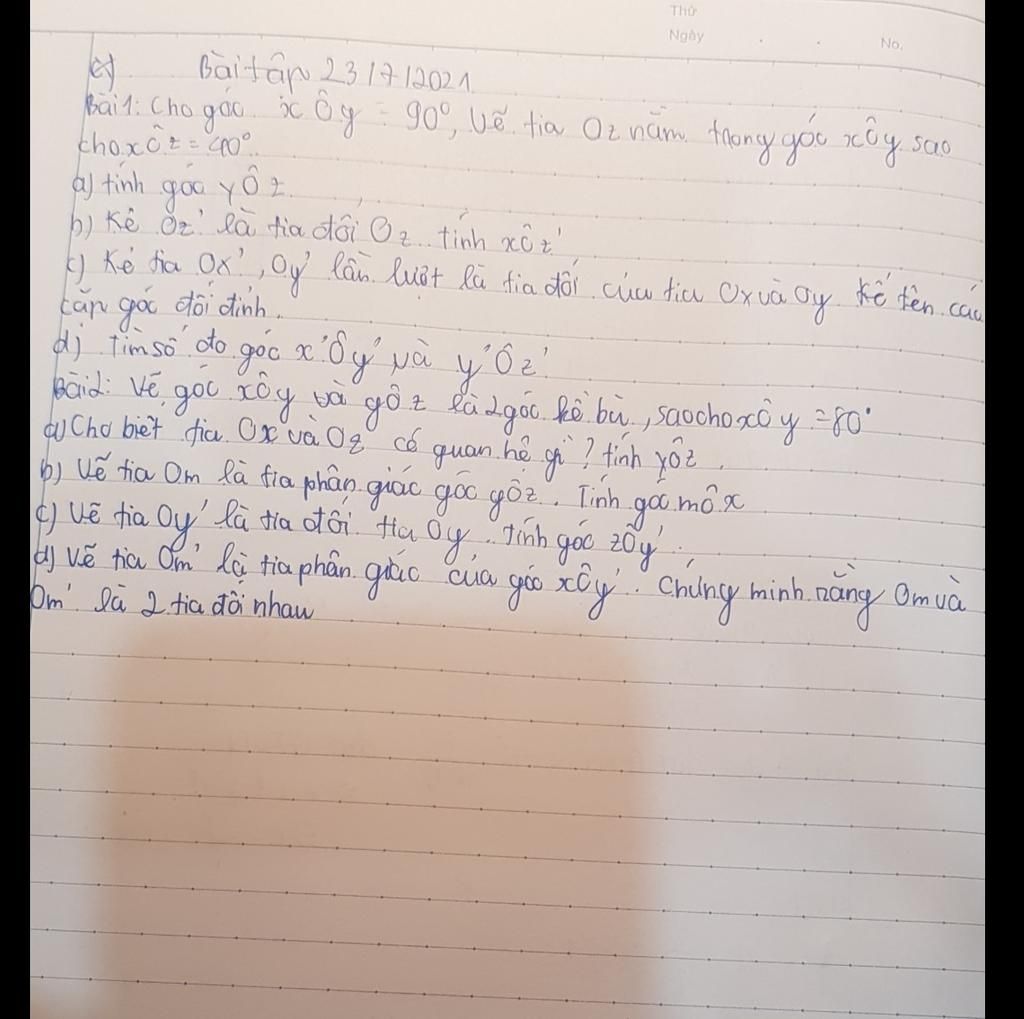 Thứ
Ngày . . No.
Bài tập 23/7/2021
Bài 1: Cho góc xÔy = 90°, vẽ tia Oz nằm trong góc xÔy sao
cho xÔz = 40°.
a) tính góc yÔz.
b) Kẻ Oz' là tia đối Oz. tính xÔz'
c) Kẻ tia Ox', Oy' lần lượt là tia đối của tia Ox và Oy kể tên các
cặp góc đối đỉnh.
d) Tìm số đo góc x'Ôy' và y'Ôz'
Bài 2: Vẽ góc xÔy và yÔz là 2 góc kề bù, sao cho xÔy = 80°
a) Cho biết tia Ox và Oz có quan hệ gì? tính yÔz.
b) Vẽ tia Om là tia phân giác góc yÔz. Tính góc mÔx
c) Vẽ tia Oy' là tia đối tia Oy. Tính góc zÔy'.
d) Vẽ tia Om' là tia phân giác của góc xÔy'. Chứng minh rằng Om và
Om' là 2 tia đối nhau